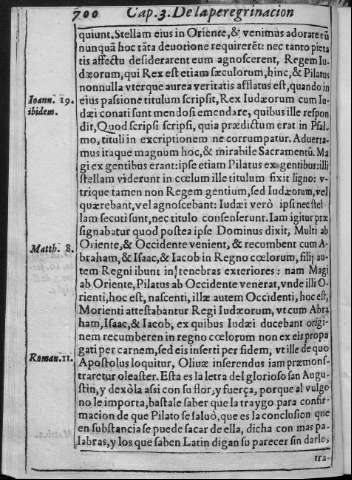 700 Cap. 3. De la peregrinacion
quiunt. Stellam eius in Oriente, & venimus adorare eũ
nunquã hoc tãta deuotione requirerẽt: nec tanto pieta
tis affectu desiderarent eum agnoscerent, Regem Iu-
dæorum, qui Rex est etiam sæculorum, hinc, & Pilatus
nonnulla vterque aurea veritatis afflatus est, quando in
Ioann. 19. eius passione titulum scripsit, Rex Iudæorum cum Iu-
ibidem. dæi conati sunt mendosi emendare, quibus ille respon
dit, Quod scripsi scripsi, quia prædictum erat in Psal-
mo, tituli in excriptionem ne corrumpatur. Aduerta-
mus itaque magnum hoc, & mirabile Sacramentũ. Ma
gi ex gentibus erant: ipse etiam Pilatus ex gentibus: illi
stellam viderunt in cœlum ille titulum fixit ligno: v-
trique tamen non Regem gentium, sed Iudæorum, vel
quærebant, vel agnoscebant: Iudæi verò ipsi nec stel-
lam secuti sunt, nec titulo consenserunt. Iam igitur præ
signabatur quod postea ipse Dominus dixit, Multi ab
Matth. 8. Oriente, & Occidente venient, & recumbent cum A-
braham, & Isaac, & Iacob in Regno cœlorum, filij au-
tem Regni ibunt in tenebras exteriores: nam Magi
ab Oriente, Pilatus ab Occidente venerat, vnde illi Ori-
orienti, hoc est, nascenti, illæ autem Occidenti, hoc est,
Morienti attestabantur Regi Iudæorum, vt cum Abra
ham, Isaac, & Iacob, ex quibus Iudæi ducebant origi-
nem recumberen in regno cœlorum non ex eis propa
Roman. 11. gati per carnem, sed eis inserti per fidem, vt ille de quo
Apostolus loquitur, Oliuæ inserendus iam præmons-
traretur oleaster. Esta es la letra del glorioso san Augu-
stin, y dexòla assi con su flor, y fuerça, porque al vulgo
no le importa, bastale saber que la traygo para confir-
macion de que Pilato se saluò, que es la conclusion que
en substancia se puede sacar de ella, dicha con mas pa-
labras, y los que saben Latin digan su parecer sin darle,
tra-